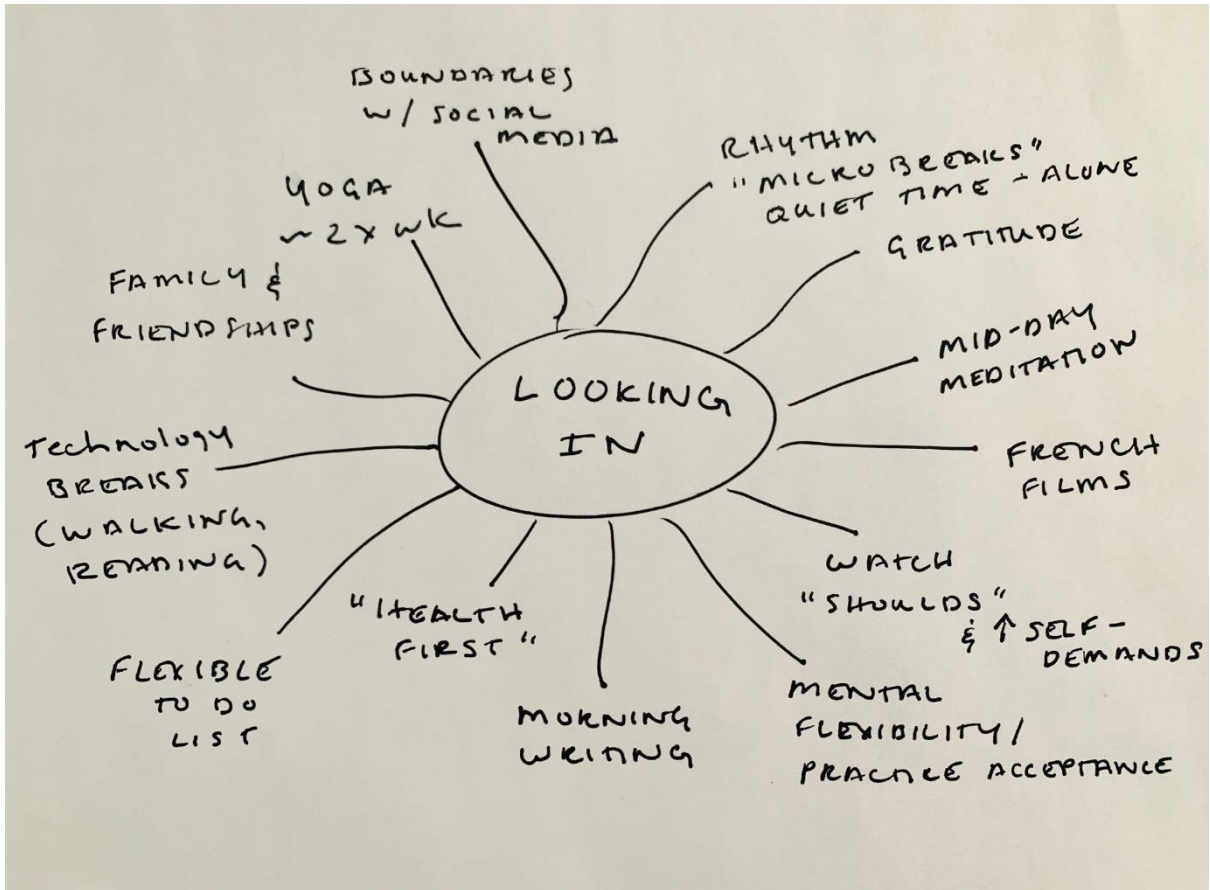 BOUNDARIES
W/ SOCIAL
MEDIA
RHYTHM
"MICRO BREAKS"
QUIET TIME - ALONE
GRATITUDE
MID-DAY
MEDITATION
FRENCH
FILMS
WATCH
"SHOULDS"
& ↑ SELF-
DEMANDS
MENTAL
FLEXIBILITY/
PRACTICE ACCEPTANCE
MORNING
WRITING
"HEALTH
FIRST"
FLEXIBLE
TO DO
LIST
Technology
BREAKS
(WALKING,
READING)
FAMILY &
FRIENDSHIPS
YOGA
~ 2X WK
LOOKING
IN